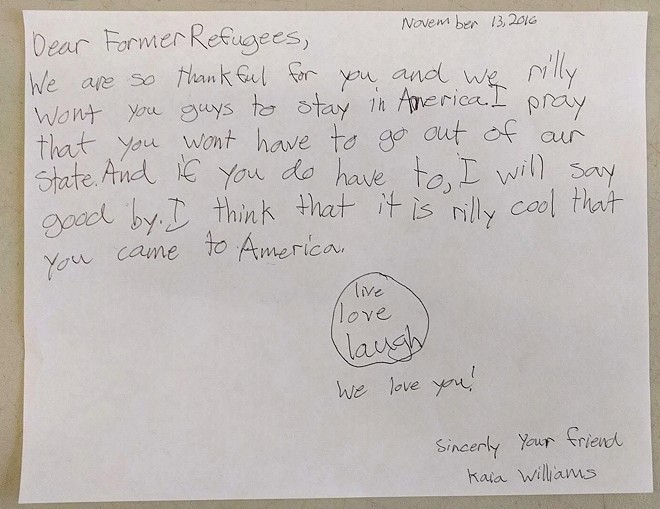 November 13, 2016
Dear Former Refugees,
We are so thankful for you and we rilly
wont you guys to stay in America. I pray
that you wont have to go out of our
State. And if you do have to, I will say
good by. I think that it is rilly cool that
you came to America.
live
love
laugh
We love you!
Sincerly your friend
Kaia Williams